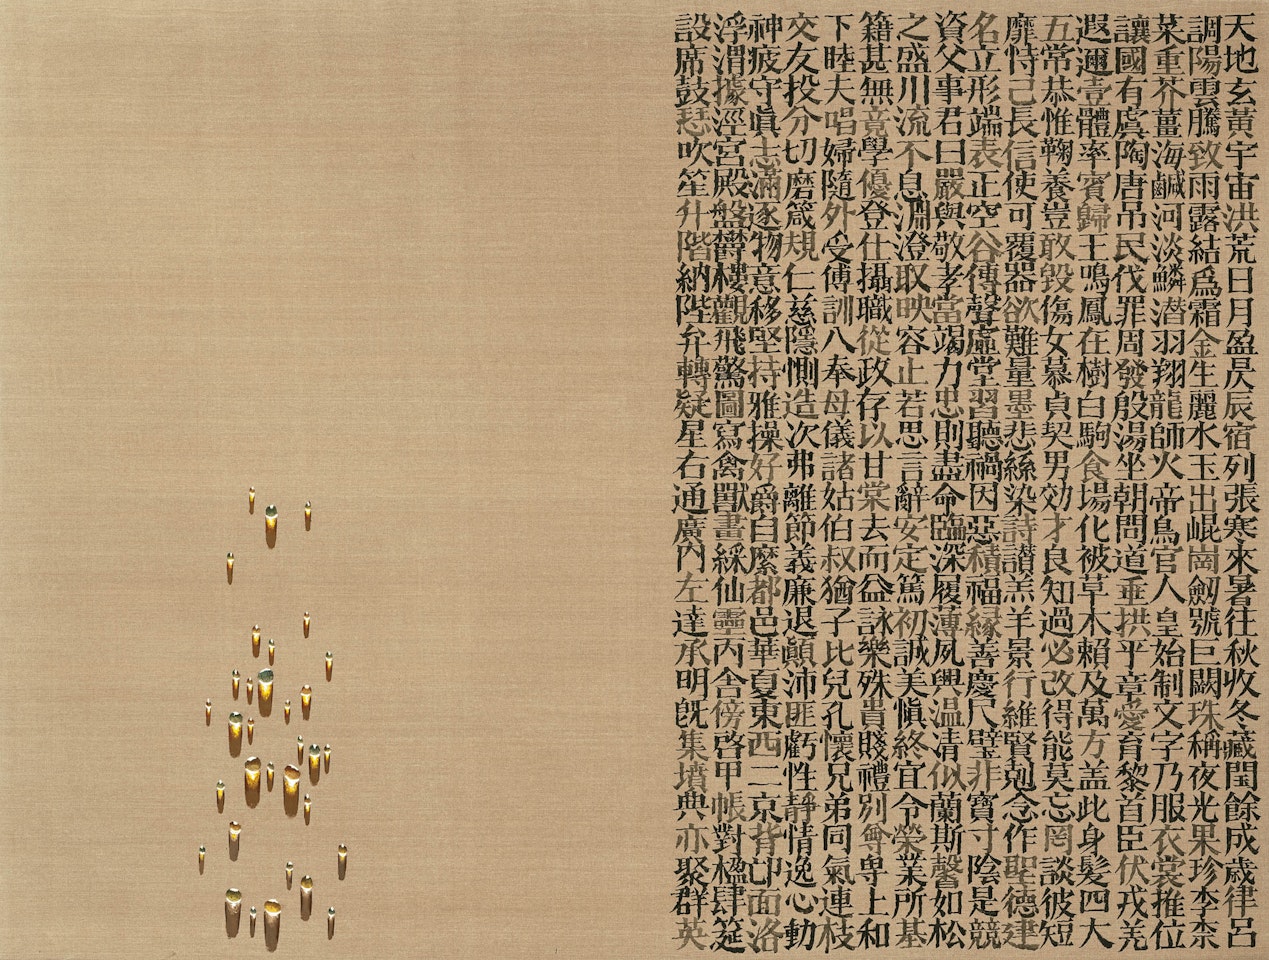 天地玄黃宇宙洪荒日月盈昃辰宿列張寒來暑往秋收冬藏閏餘成歲律呂
調陽雲騰致雨露結爲霜金生麗水玉出崐崗劒號巨闕珠稱夜光果珍李柰
菜重芥薑海鹹河淡鱗潛羽翔龍師火帝鳥官人皇始制文字乃服衣裳推位
讓國有虞陶唐吊民伐罪周發殷湯坐朝問道垂拱平章愛育黎首臣伏戎羌
遐邇壹體率賓歸王鳴鳳在樹白駒食場化被草木賴及萬方盖此身髮四大
五常恭惟鞠養豈敢毁傷女慕貞契男効才良知過必改得能莫忘罔談彼短
靡恃己長信使可覆器欲難量墨悲絲染詩讃羔羊景行維賢剋念作聖德建
名立形端表正空谷傳聲虛堂習聽禍因惡積福緣善慶尺璧非寶寸陰是競
資父事君曰嚴與敬孝當竭力忠則盡命臨深履薄夙興溫淸似蘭斯馨如松
之盛川流不息淵澄取映容止若思言辭安定篤初誠美愼終宜令榮業所基
籍甚無竟學優登仕攝職從政存以甘棠去而益詠樂殊貴賤禮別尊卑上和
下睦夫唱婦隨外受傅訓入奉母儀諸姑伯叔猶子比兒孔懷兄弟同氣連枝
交友投分切磨箴規仁慈隱惻造次弗離節義廉退顚沛匪虧性靜情逸心動
神疲守眞志滿逐物意移堅持雅操好爵自縻都邑華夏東西二京背邙面洛
浮渭據涇宮殿盤欝樓觀飛驚圖寫禽獸畫綵仙靈丙舍傍啓甲帳對楹肆筵
設席鼓瑟吹笙升階納陛弁轉疑星右通廣內左達承明旣集墳典亦聚群英